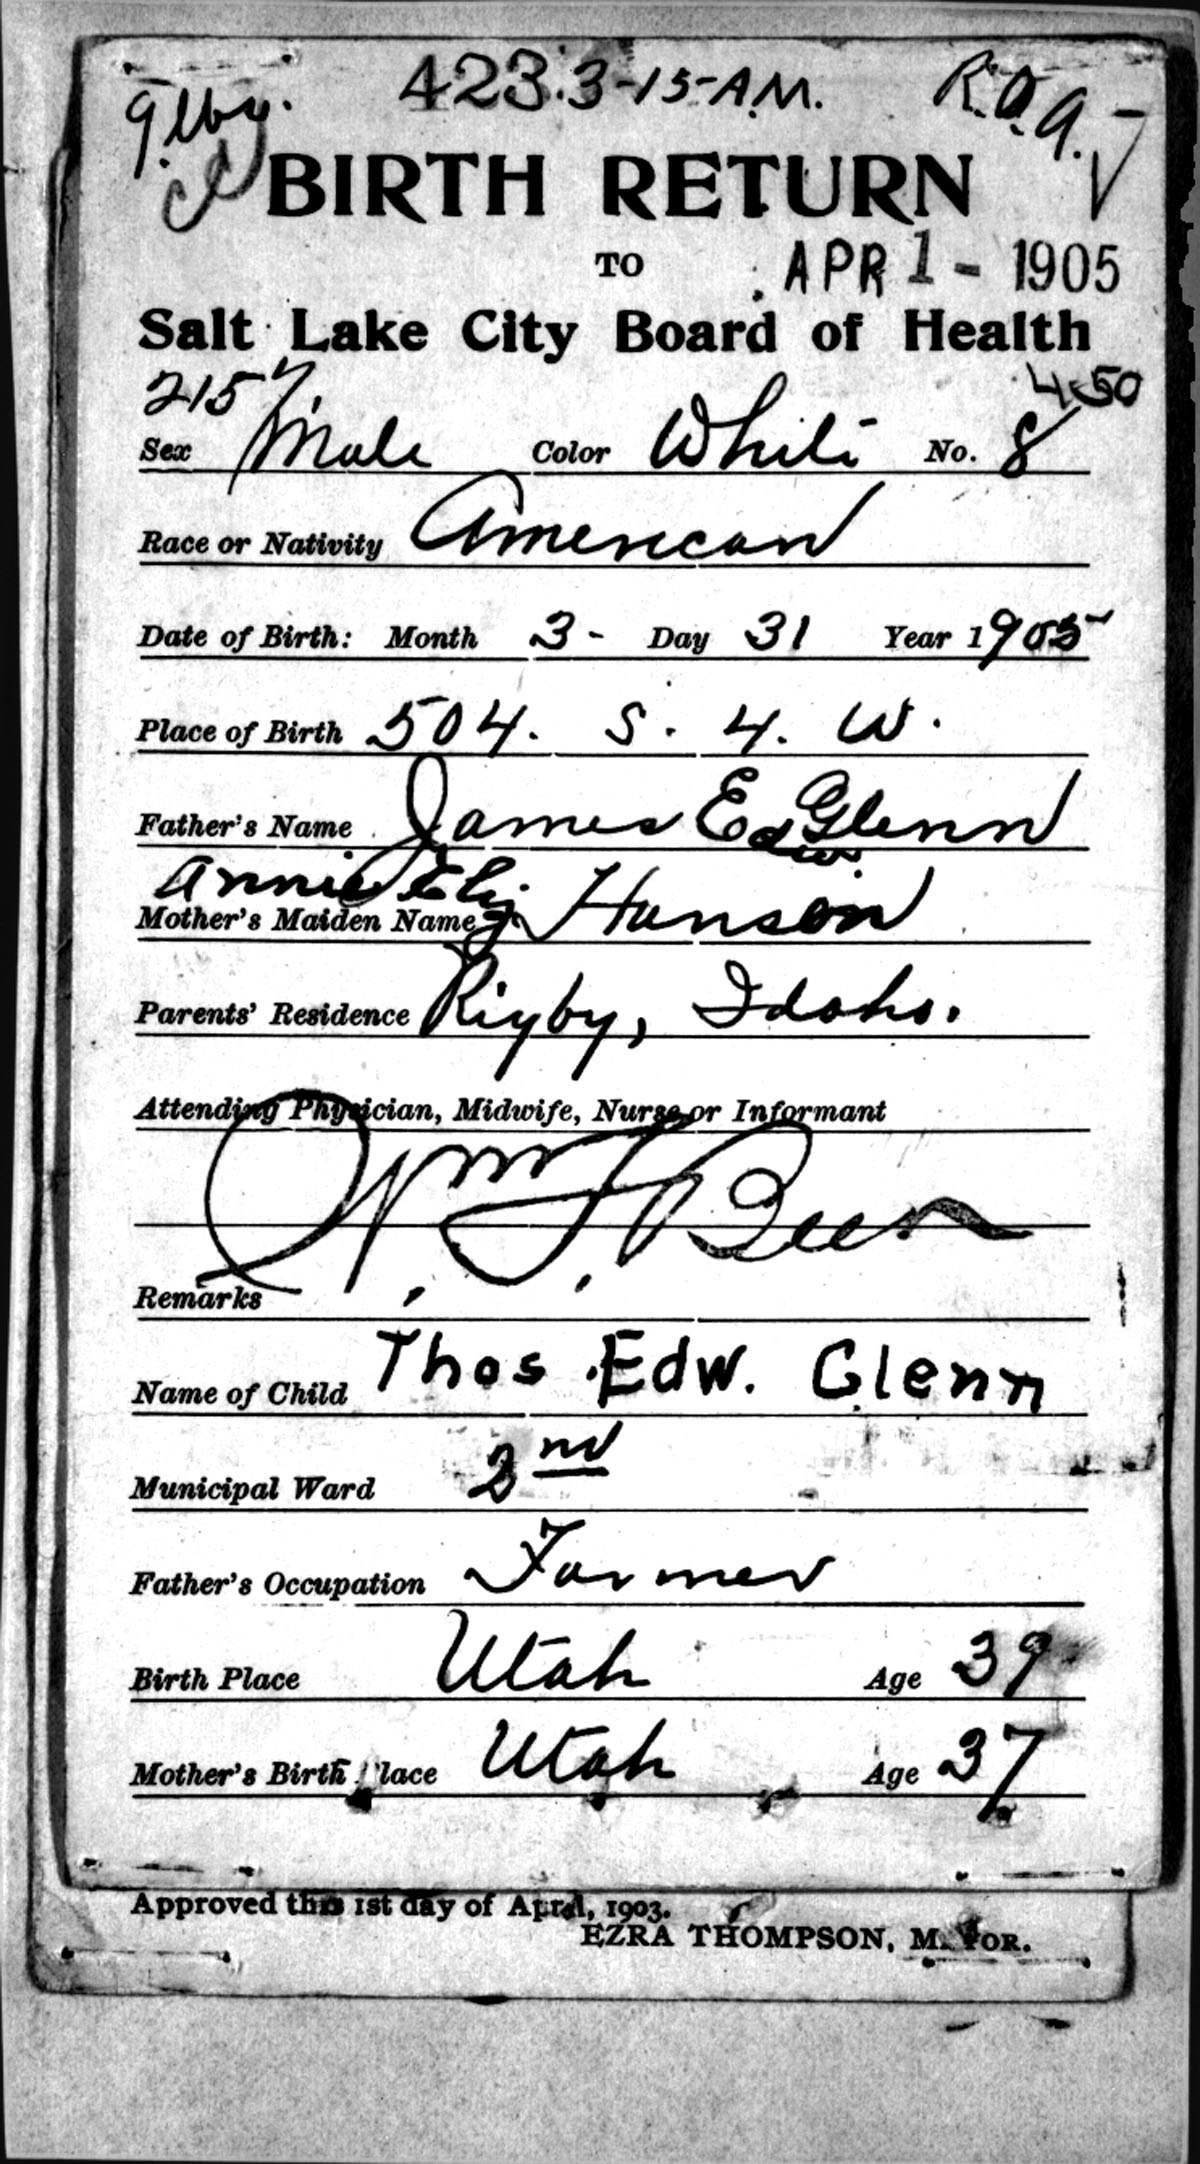 423. 3-15-A.M. R.O.A.
BIRTH RETURN
TO APR 1 - 1905
Salt Lake City Board of Health
2157 450
Sex Male Color White No. 8
Race or Nativity American
Date of Birth: Month 3- Day 31 Year 1905
Place of Birth 504. S. 4. W.
Father's Name James Ed Glenn
Edw.
Annie Eliz
Mother's Maiden Name Hanson
Parents' Residence Rigby, Idaho.
Attending Physician, Midwife, Nurse or Informant
Wm. F. Beer
Remarks
Name of Child Thos Edw. Glenn
Municipal Ward 2nd
Father's Occupation Farmer
Birth Place Utah Age 39
Mother's Birth Place Utah Age 37
Approved this 1st day of April, 1903.
EZRA THOMPSON, MAYOR.